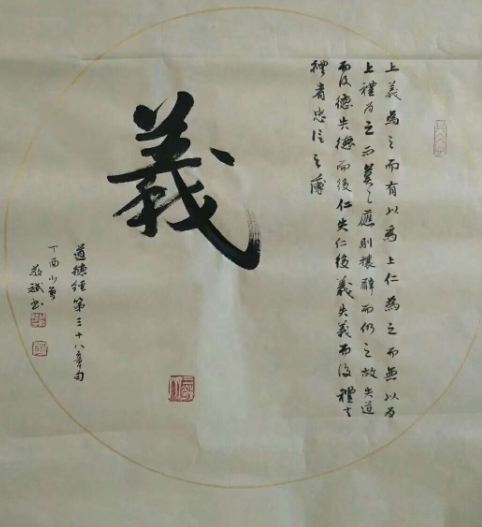 上義為之而有以為上仁為之而無以為
上禮為之而莫之應則攘臂而仍之故失道
而後德失德而後仁失仁後義失義而後禮夫
禮者忠信之薄
義
道德經第三十八章句
丁酉小雪
斌书